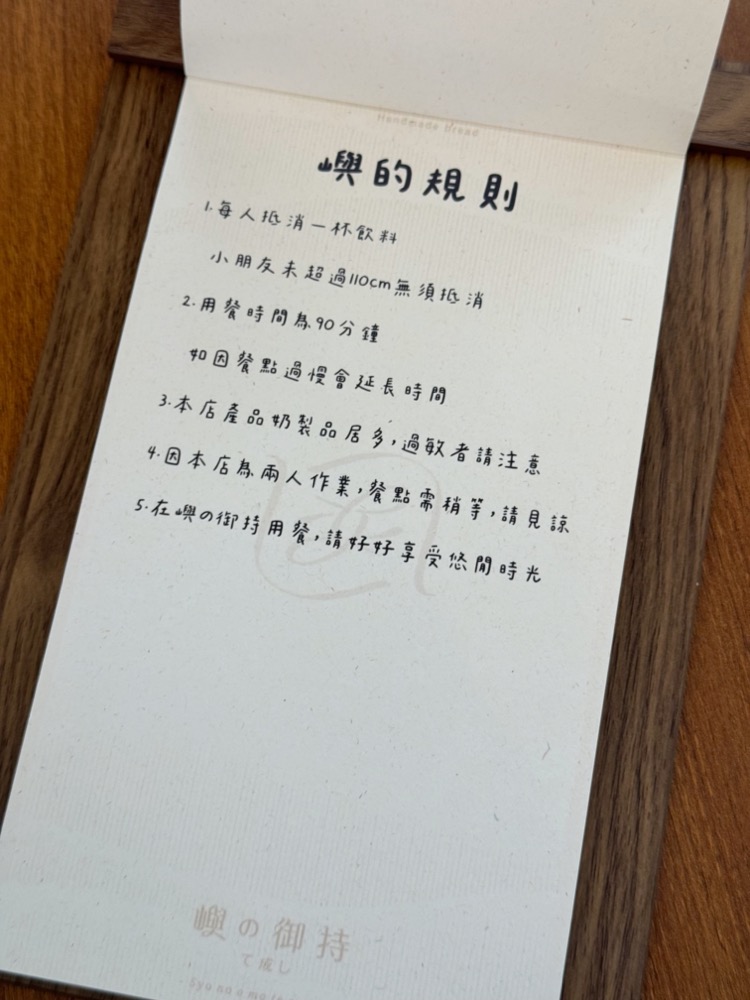 Handmade Bread
嶼的規則
1.每人抵消一杯飲料
小朋友未超過110cm無須抵消
2.用餐時間為90分鐘
如因餐點過慢會延長時間
3.本店產品奶製品居多,過敏者請注意
4.因本店為兩人作業,餐點需稍等,請見諒
5.在嶼の御持用餐,請好好享受悠閒時光
嶼の御持
て成し